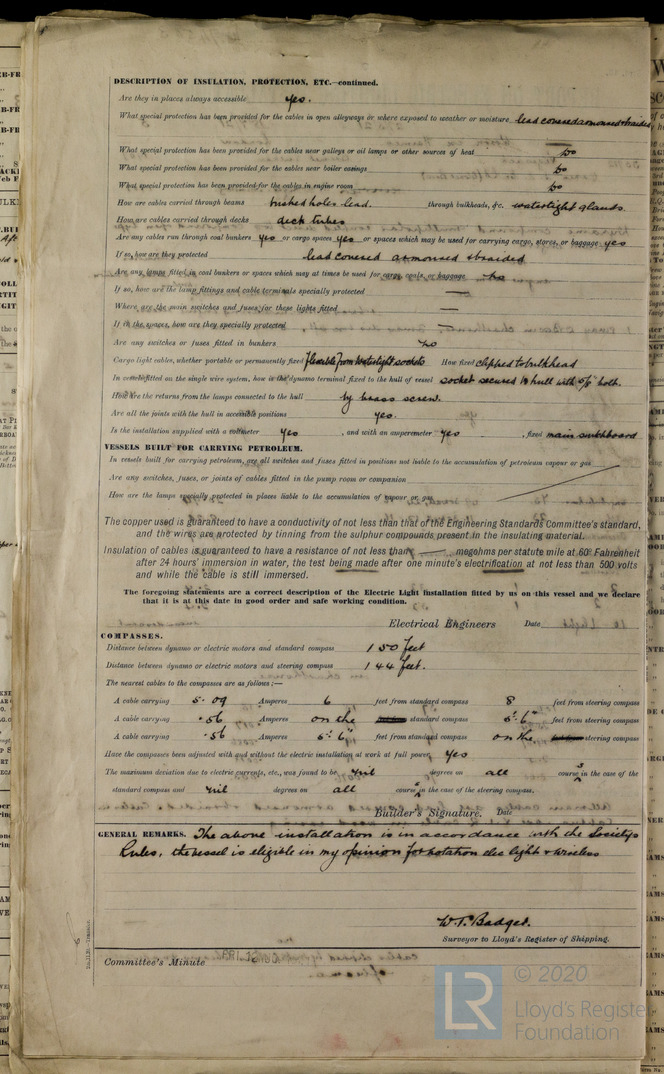 DESCRIPTION OF INSULATION, PROTECTION, ETC.—continued.
Are they in places always accessible yes.
What special protection has been provided for the cables in open alleyways or where exposed to weather or moisture lead covered armoured & braided
What special protection has been provided for the cables near galleys or oil lamps or other sources of heat Do
What special protection has been provided for the cables near boiler casings Do
What special protection has been provided for the cables in engine room Do
How are cables carried through beams bushed holes-lead. through bulkheads, &c. watertight glands.
How are cables carried through decks deck tubes
Are any cables run through coal bunkers yes or cargo spaces yes or spaces which may be used for carrying cargo, stores, or baggage yes
If so, how are they protected lead covered armoured & braided
Are any lamps fitted in coal bunkers or spaces which may at times be used for cargo, coals, or baggage No
If so, how are the lamp fittings and cable terminals specially protected —
Where are the main switches and fuses for these lights fitted —
If in the spaces, how are they specially protected —
Are any switches or fuses fitted in bunkers No
Cargo light cables, whether portable or permanently fixed flexible from Watertight sockets How fixed clipped to bulkhead
In vessels fitted on the single wire system, how is the dynamo terminal fixed to the hull of vessel socket secured to hull with 5/8" bolt.
How are the returns from the lamps connected to the hull by brass screw.
Are all the joints with the hull in accessible positions yes.
Is the installation supplied with a voltmeter yes, and with an amperemeter yes, fixed main switchboard
VESSELS BUILT FOR CARRYING PETROLEUM.
In vessels built for carrying petroleum, are all switches and fuses fitted in positions not liable to the accumulation of petroleum vapour or gas
Are any switches, fuses, or joints of cables fitted in the pump room or companion
How are the lamps specially protected in places liable to the accumulation of vapour or gas
The copper used is guaranteed to have a conductivity of not less than that of the Engineering Standards Committee's standard,
and the wires are protected by tinning from the sulphur compounds present in the insulating material.
Insulation of cables is guaranteed to have a resistance of not less than — megohms per statute mile at 60° Fahrenheit
after 24 hours' immersion in water, the test being made after one minute's electrification at not less than 500 volts
and while the cable is still immersed.
The foregoing statements are a correct description of the Electric Light Installation fitted by us on this vessel and we declare
that it is at this date in good order and safe working condition.
Electrical Engineers Date
COMPASSES.
Distance between dynamo or electric motors and standard compass 150 feet
Distance between dynamo or electric motors and steering compass 144 feet.
The nearest cables to the compasses are as follows:—
A cable carrying 5.09 Amperes 6 feet from standard compass 8 feet from steering compass
A cable carrying .56 Amperes on the standard compass 5'.6" feet from steering compass
A cable carrying .56 Amperes 5'.6" feet from standard compass on the steering compass
Have the compasses been adjusted with and without the electric installation at work at full power yes
The maximum deviation due to electric currents, etc., was found to be nil degrees on all courses in the case of the
standard compass and nil degrees on all courses in the case of the steering compass.
Builder's Signature. Date
GENERAL REMARKS. The above installation is in accordance with the Society's
Rules, the vessel is eligible in my opinion for notation elec light & wireless
W.P. Badger.
Surveyor to Lloyd's Register of Shipping.
Committee's Minute
LR © 2020
Lloyd's Register
Foundation